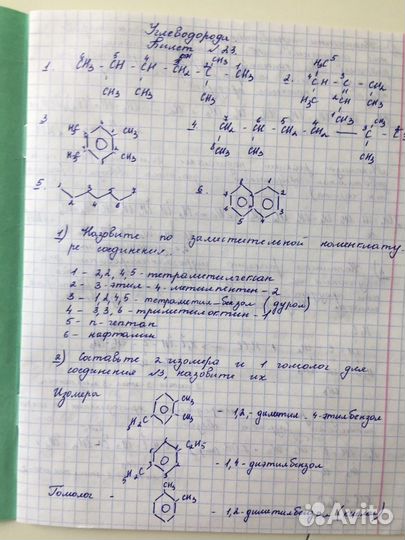 Углеводороды
Билет №23
1. CH₃ - CH - CH - CH₂ - C - CH₃
CH₃
CH₃ CH₃ CH₃
2. H₃C
CH - C = C - CH₃
H₃C CH₂
3. H₃C CH₃
H₃C CH₃
4. CH₂ - CH - CH₂ - CH₂ - C
CH₃ CH₃ CH₃
5. 1 2 3 4 5 6 7
6. 1 2 3 4 5 6 7 8
1) Назовите по заместительной номенклату
ре соединения...
1 - 2,2,4,5 - тетраметилгексан
2 - 3 - этил - 4 - метилпентен - 2
3 - 1,2,4,5 - тетраметил-бензол (дурол)
4 - 3,3,6 - триметилоктин - 1
5 - н-гептан
6 - нафталин
2) Составьте 2 изомера и 1 гомолог для
соединения №3, назовите их
Изомера
CH₃
CH₃
H₅C₂
- 1,2, - диметил - 4-этилбензол
C₂H₅
H₅C₂
- 1,4 - диэтилбензол
Гомолог -
CH₃
CH₃
- 1,2-диметилбензол
Avito